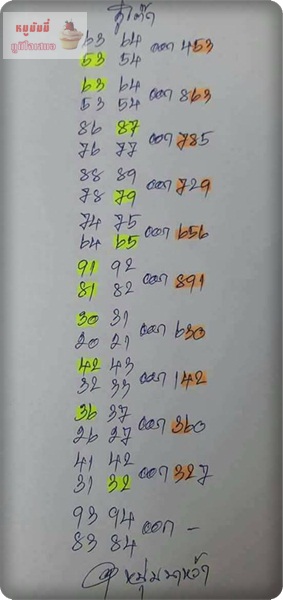 หมูมัมมี่
ภูมิใจเสนอ
63 64
53 54 ออก 453
63 64
53 54 ออก 863
86 87
76 77 ออก 785
88 89
78 79 ออก 729
74 75
64 65 ออก 656
91 92
81 82 ออก 891
30 31
20 21 ออก 630
42 43
32 33 ออก 142
36 37
26 27 ออก 360
41 42
31 32 ออก 327
93 94
83 84 ออก -